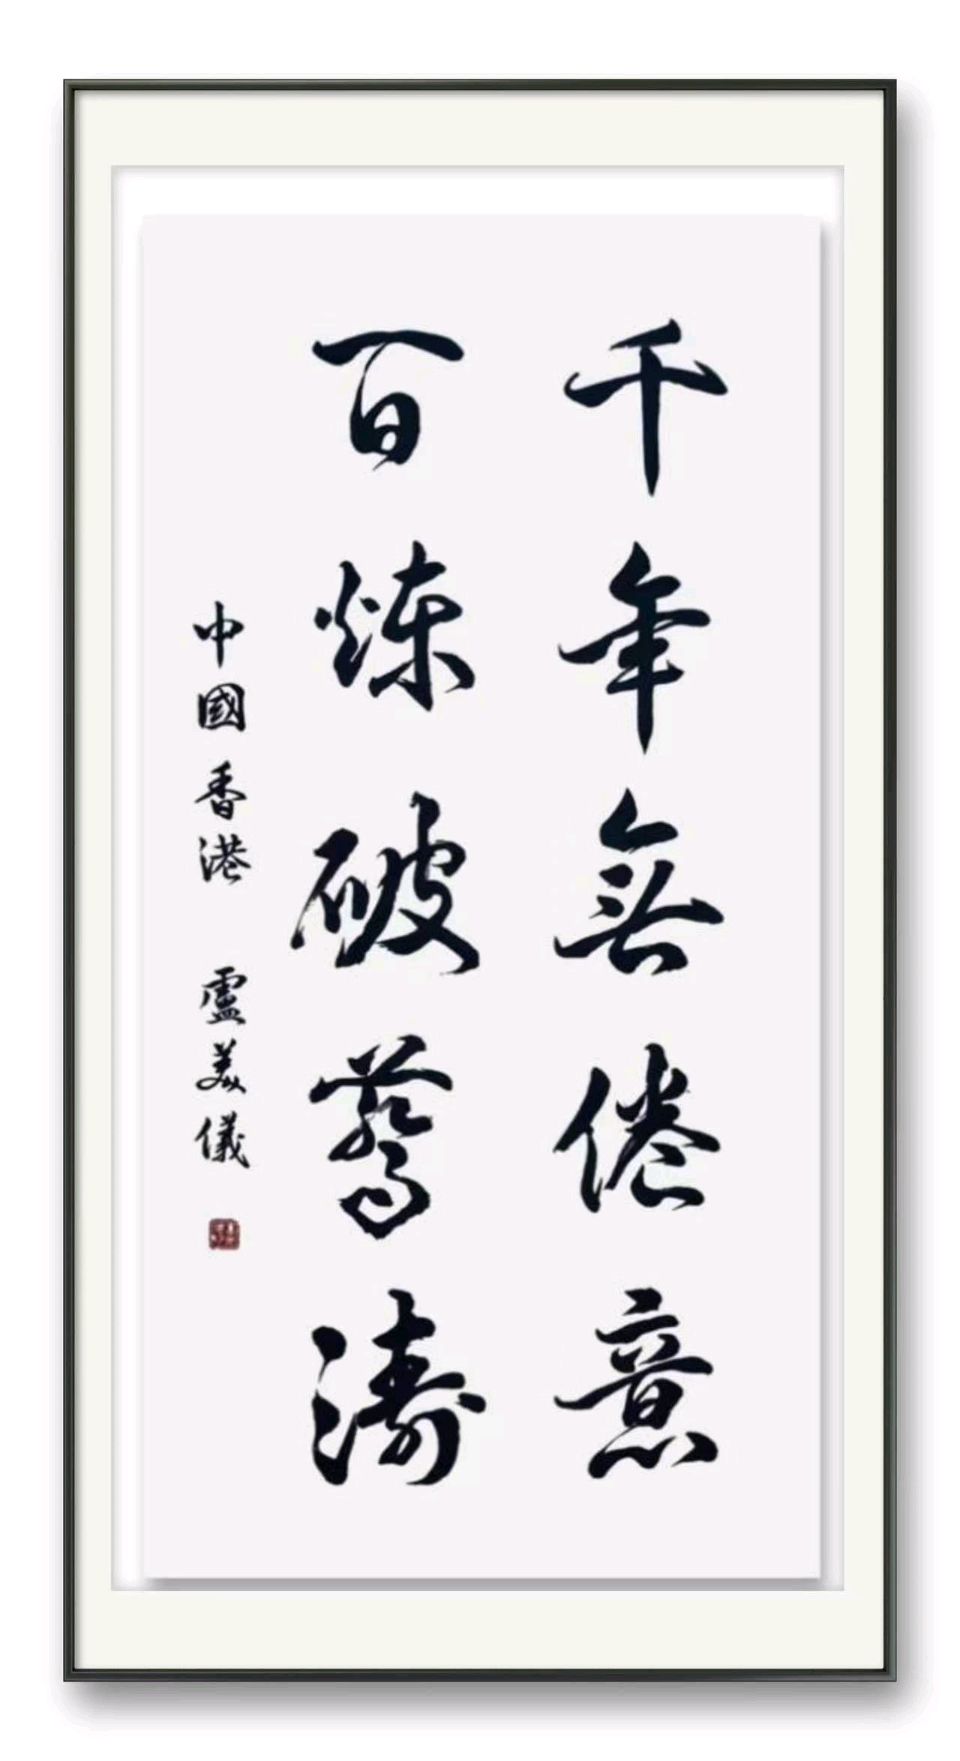 千年無倦意
百煉破驚濤
中國香港 盧美儀